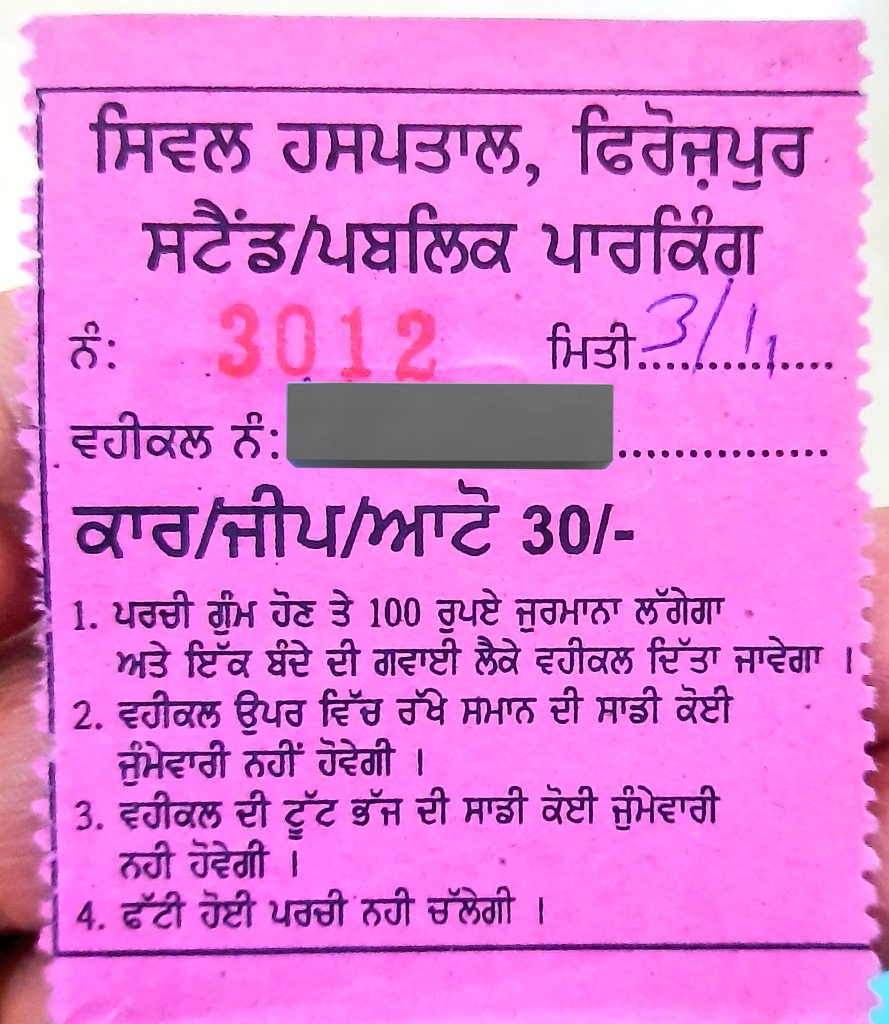 ਸਿਵਲ ਹਸਪਤਾਲ, ਫਿਰੋਜ਼ਪੁਰ
ਸਟੈਂਡ/ਪਬਲਿਕ ਪਾਰਕਿੰਗ
ਨੰ: 3012 ਮਿਤੀ 3/1
ਵਹੀਕਲ ਨੰ:
ਕਾਰ/ਜੀਪ/ਆਟੋ 30/-
1. ਪਰਚੀ ਗੁੰਮ ਹੋਣ ਤੇ 100 ਰੁਪਏ ਜੁਰਮਾਨਾ ਲੱਗੇਗਾ
ਅਤੇ ਇੱਕ ਬੰਦੇ ਦੀ ਗਵਾਈ ਲੈਕੇ ਵਹੀਕਲ ਦਿੱਤਾ ਜਾਵੇਗਾ ।
2. ਵਹੀਕਲ ਉਪਰ ਵਿੱਚ ਰੱਖੇ ਸਮਾਨ ਦੀ ਸਾਡੀ ਕੋਈ
ਜੁੰਮੇਵਾਰੀ ਨਹੀਂ ਹੋਵੇਗੀ ।
3. ਵਹੀਕਲ ਦੀ ਟੂੱਟ ਭੱਜ ਦੀ ਸਾਡੀ ਕੋਈ ਜੁੰਮੇਵਾਰੀ
ਨਹੀ ਹੋਵੇਗੀ ।
4. ਫੱਟੀ ਹੋਈ ਪਰਚੀ ਨਹੀ ਚੱਲੇਗੀ ।